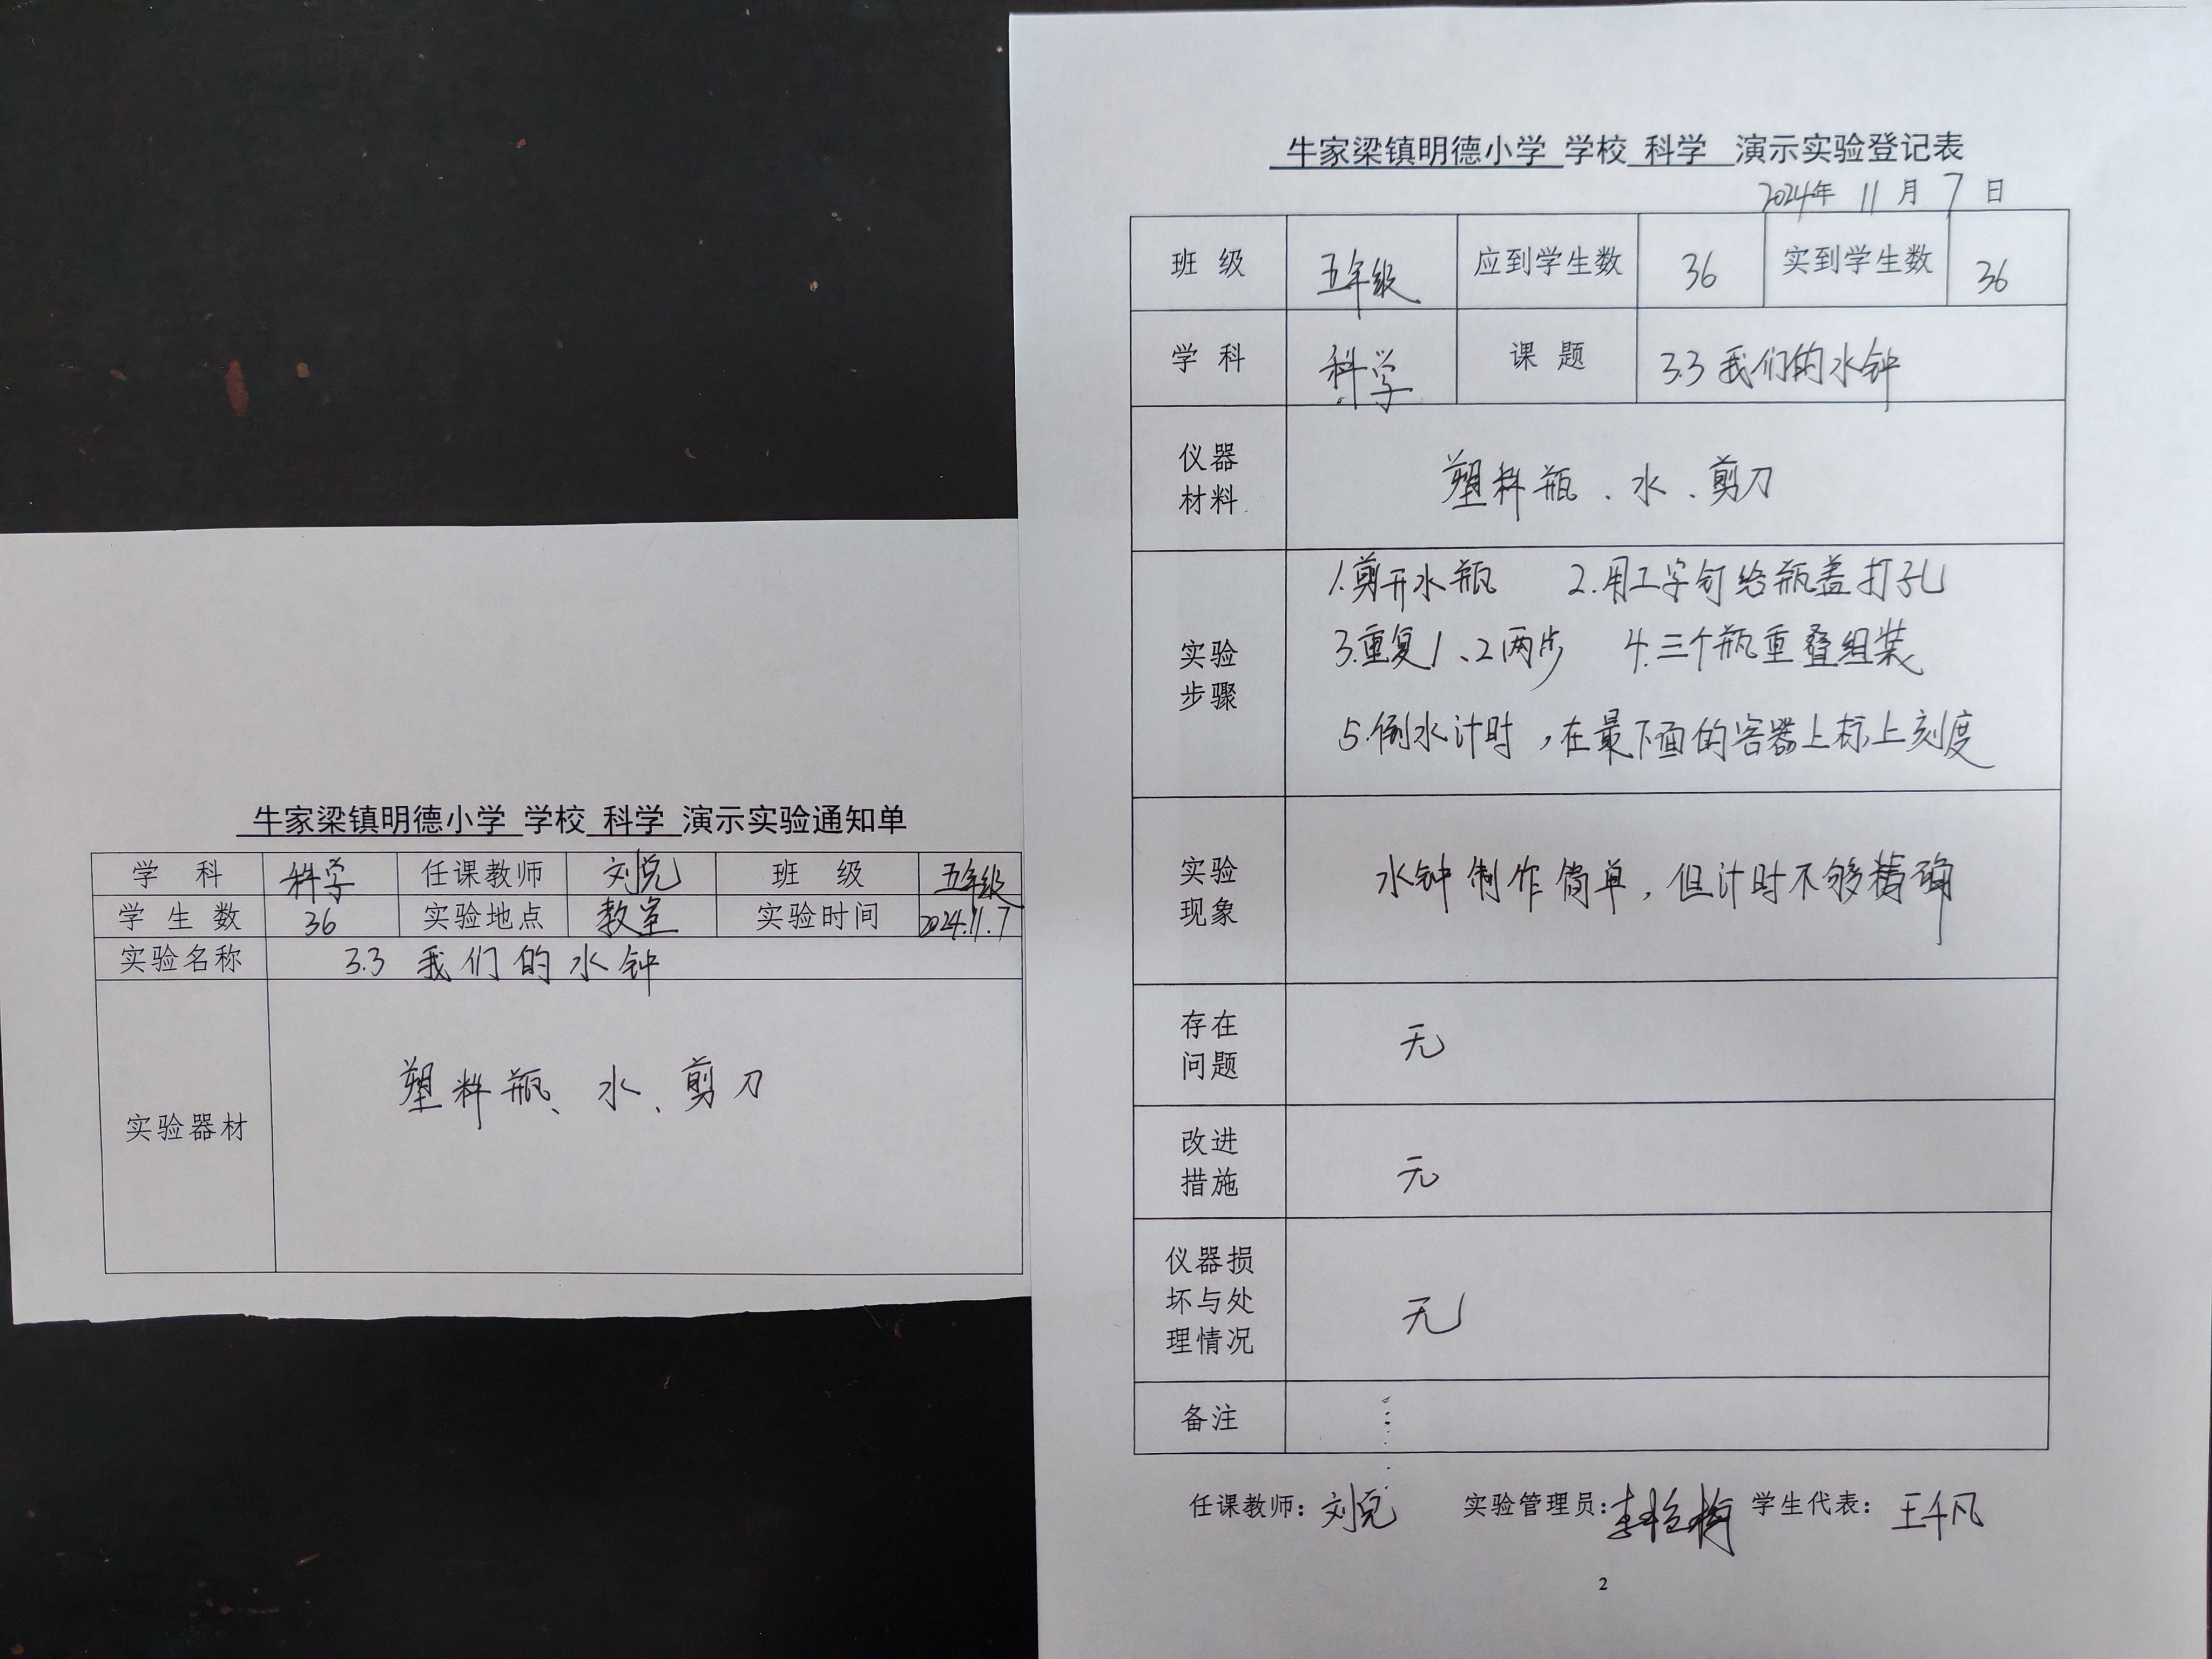 牛家梁镇明德小学 学校 科学 演示实验通知单
学 科 科学 任课教师 刘竞 班 级 五年级
学 生 数 36 实验地点 教室 实验时间 2024.11.7
实验名称 3.3 我们的水钟
实验器材 塑料瓶、水、剪刀
牛家梁镇明德小学 学校 科学 演示实验登记表
2024年 11 月 7 日
班 级 五年级 应到学生数 36 实到学生数 36
学 科 科学 课 题 3.3 我们的水钟
仪器
材料
塑料瓶、水、剪刀
实验
步骤
1.剪开水瓶 2.用工字钉给瓶盖打孔
3.重复1、2两步 4.三个瓶重叠组装
5.倒水计时,在最下面的容器上标上刻度
实验
现象
水钟制作简单,但计时不够精确
存在
问题
无
改进
措施
无
仪器损
坏与处
理情况
无
备注
任课教师: 刘竞 实验管理员: 学生代表: 王千凡
2